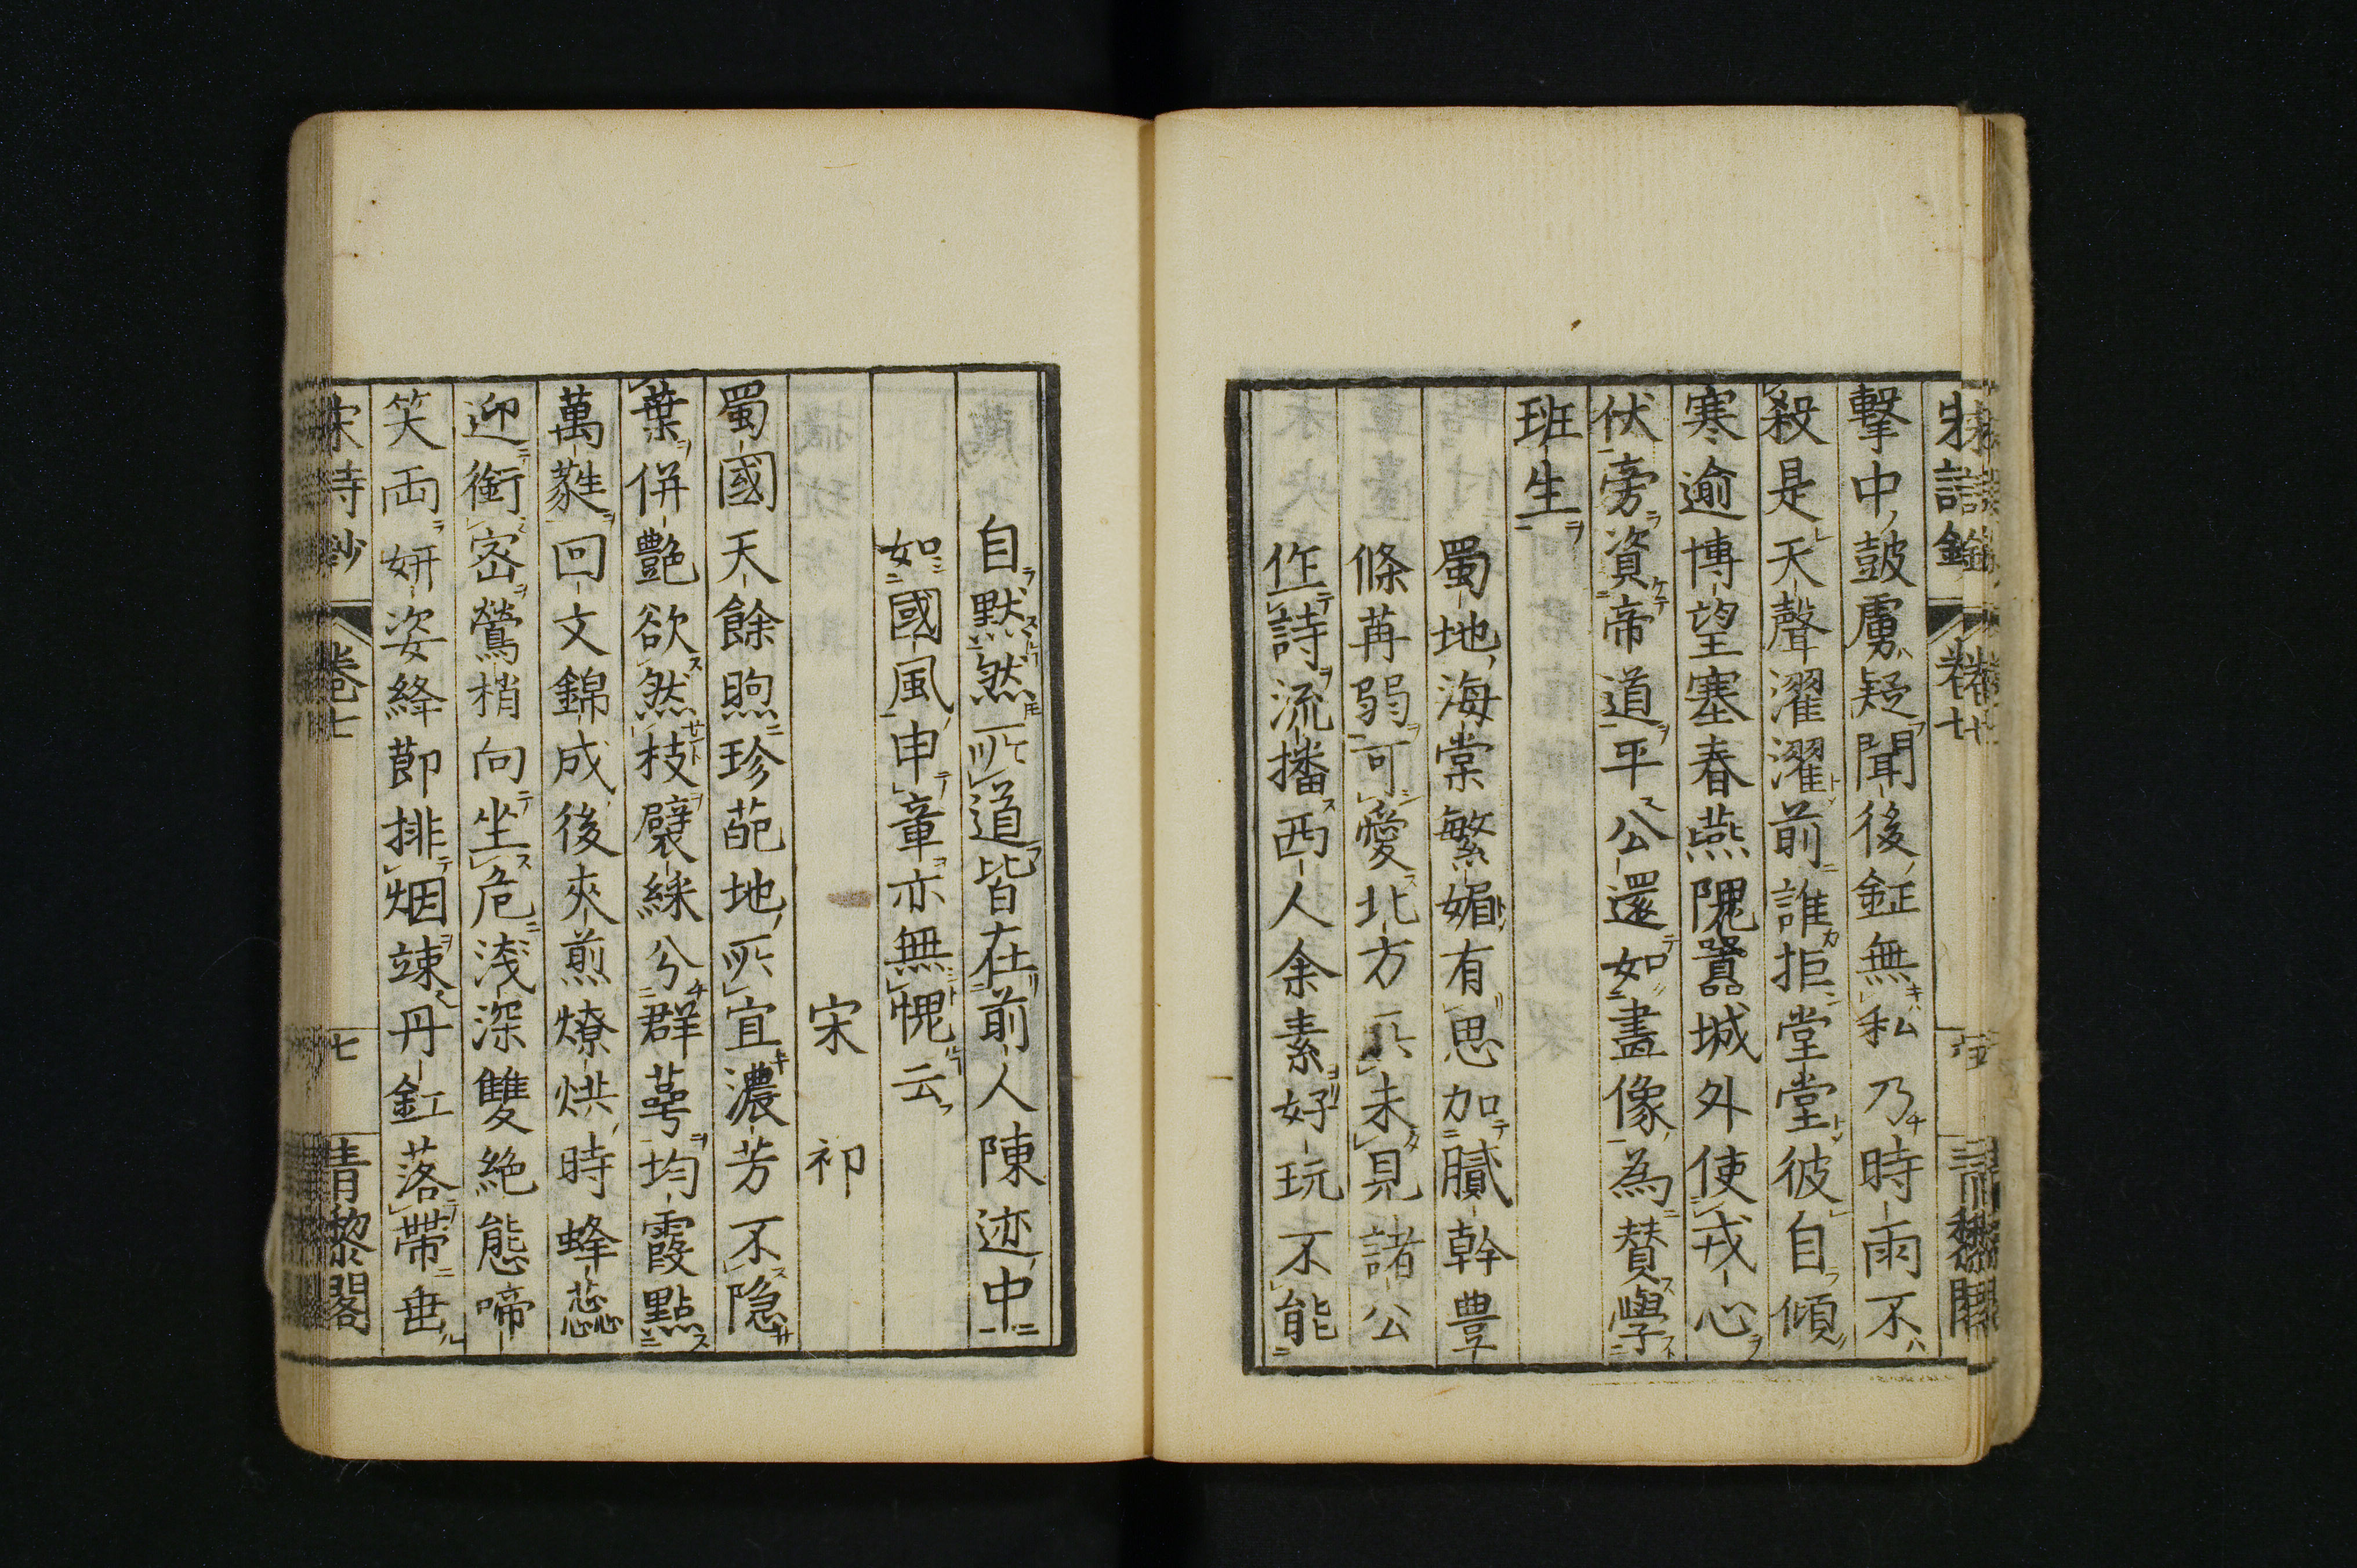 擊中皷虜疑聞後鉦無私乃時雨不
殺是天聲濯濯前誰拒堂堂彼自傾
寒逾博望塞春燕隗囂城外使戎心
伏旁資帝道平公還如畫像為贊學
班生
蜀地海棠繁媚有思加膩幹豊
條苒弱可愛北方所未見諸公
作詩流播西人余素好玩不能
自黙然所道皆在前人陳迹中
如國風申章亦無愧云
宋祁
蜀國天餘煦珍葩地所宜濃芳不隐
葉併艷欲然枝襞綵分群萼均霞點
萬蕤回文錦成後夾煎燎烘時蜂蕊
迎銜密鶯梢向坐危浅深雙絶態啼
笑両妍姿絳節排烟竦丹釭落帶垂
宋詩鈔 卷七 七 青黎閣